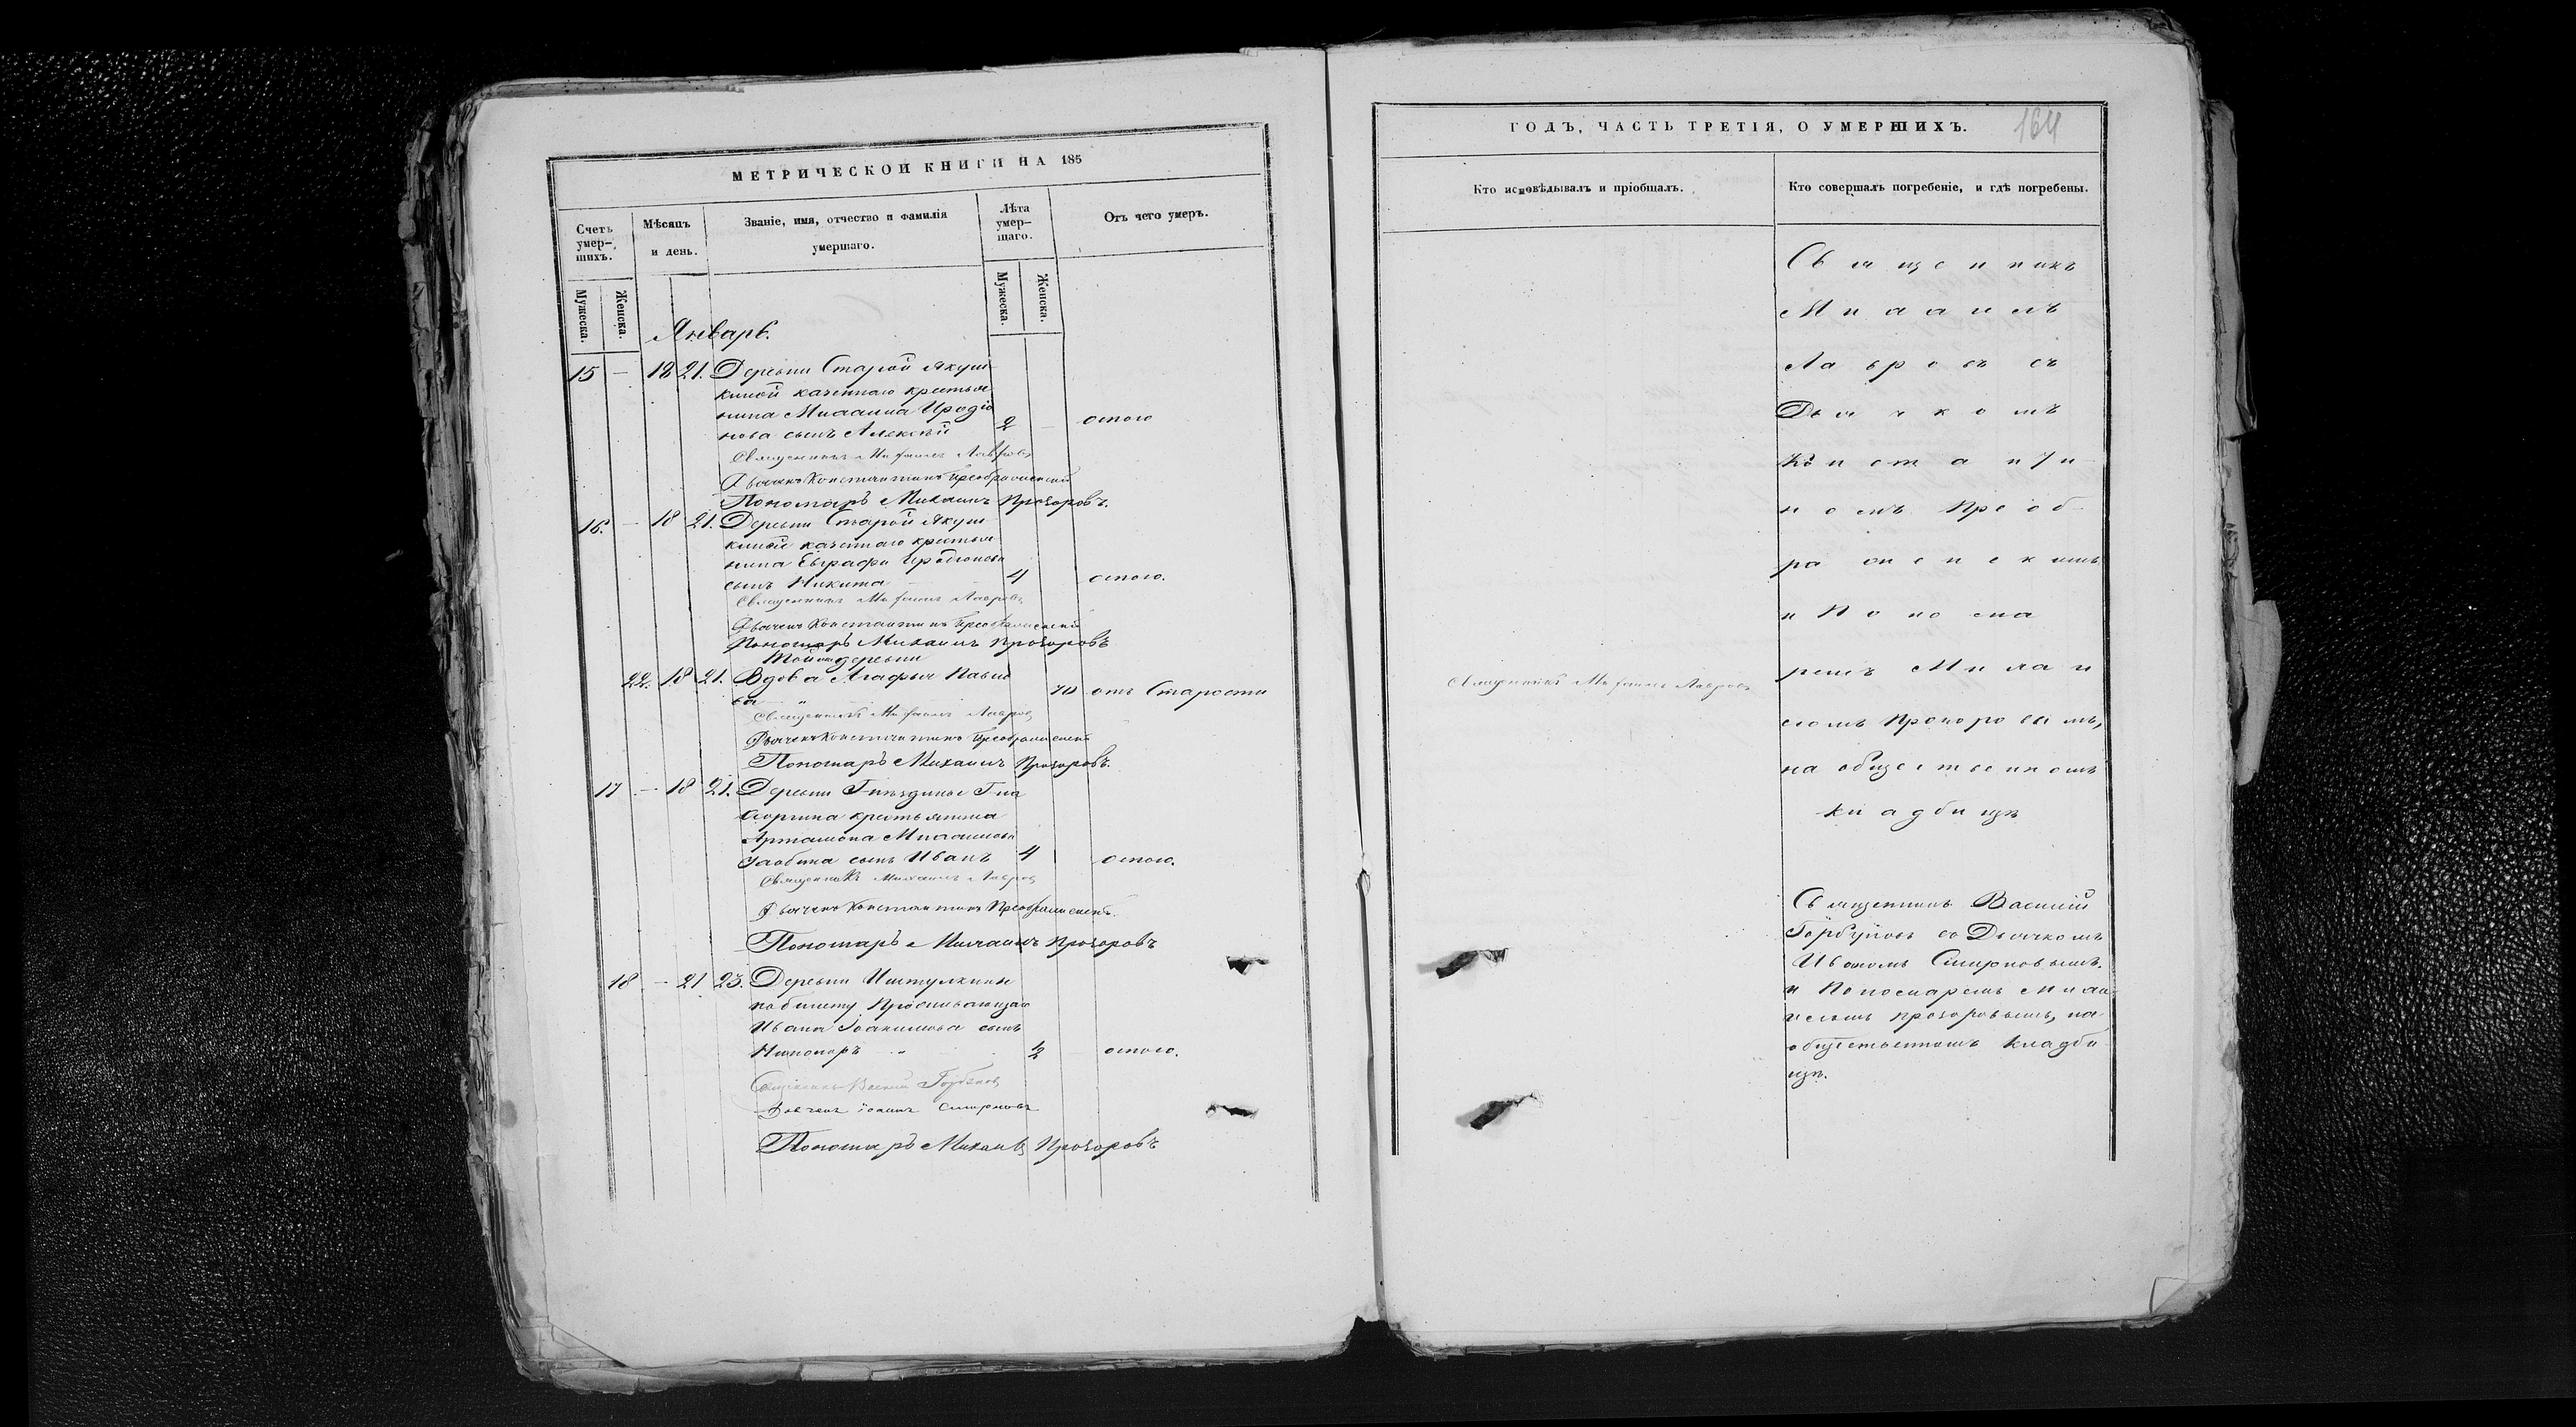 МЕТРИЧЕСКОЙ КНИГИ НА 185
Счетъ умер-шихъ.
Мѣсяцъ и день.
Званіе, имя, отчество и фамилія умершаго.
Лѣта умер-шаго.
Отъ чего умеръ.
Мужеска.
Женска.
Мужеска.
Женска.
Январь.
15 — 18 21. Деревни Старой Якуш-
киной казеннаго крестья
нина Михаила Иродіо
нова сынъ Алексѣй 2 — оспою
Священникъ Михаилъ Лавровъ
Дьячекъ Константинъ Преображенскій
Пономарь Михаилъ Прозоровъ.
16. — 18 21. Деревни Старой Якуш
киной казеннаго крестья
нина Евграфа Иродіонова
сынъ Никита 4 оспою.
Священникъ Михаилъ Лавровъ
Дьячекъ Константинъ Преображенскій
Пономарь Михаилъ Прозоровъ
Той же деревни
22. 18 21. Вдова Агафья Павло
ва 70 отъ Старости
Священникъ Михаилъ Лавровъ
Дьячекъ Константинъ Преображенскій
Пономарь Михаилъ Прозоровъ.
17 — 18 21. Деревни Гнѣздины
крестьянина
Артамона Михаилова
сынъ Иванъ 4 оспою.
Священникъ Михаилъ Лавровъ
Дьячекъ Константинъ Преображенскій.
Пономарь Михаилъ Прозоровъ
18 — 21 23. Деревни Иштулкины
по билету проживающаго
Ивана Іоакимова сынъ
Никаноръ 1/2 оспою.
Священникъ Василій Горбуновъ
Дьячекъ Іоаннъ Смирновъ
Пономарь Михаилъ Прозоровъ
ГОДЪ, ЧАСТЬ ТРЕТІЯ, О УМЕРШИХЪ.
164
Кто исповѣдывалъ и пріобщалъ.
Кто совершалъ погребеніе, и гдѣ погребены.
Священникъ Михаилъ Лавровъ
Священникъ
Михаилъ
Лавровъ съ
Дьячкомъ
Константи
номъ Преоб-
раженскимъ
и Понома
ремъ Михаи
ломъ Прозоровымъ,
на общественномъ
кладбищѣ
Священникъ Василій
Горбуновъ со Дьячкомъ
Иваномъ Смирновымъ.
и Пономаремъ Миха-
иломъ Прозоровымъ, на
общественномъ кладби
щѣ.